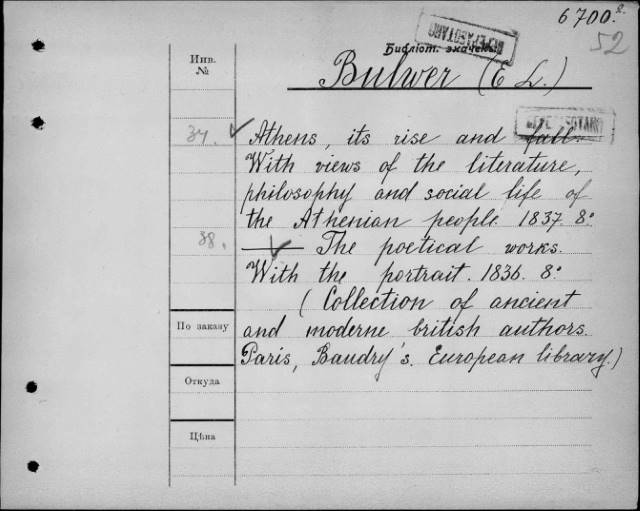 6700.²
52
ПЕРЕРАБОТАНО
Библіот. значекъ
Bulwer (E L.)
Инв.
№
37. Athens, its rise and fall.
With views of the literature,
philosophy and social life of
the Athenian people. 1837. 8°
38. — The poetical works.
With the portrait. 1836. 8°
(Collection of ancient
and moderne british authors.
Paris, Baudry's European library.)
По заказу
Откуда
Цѣна